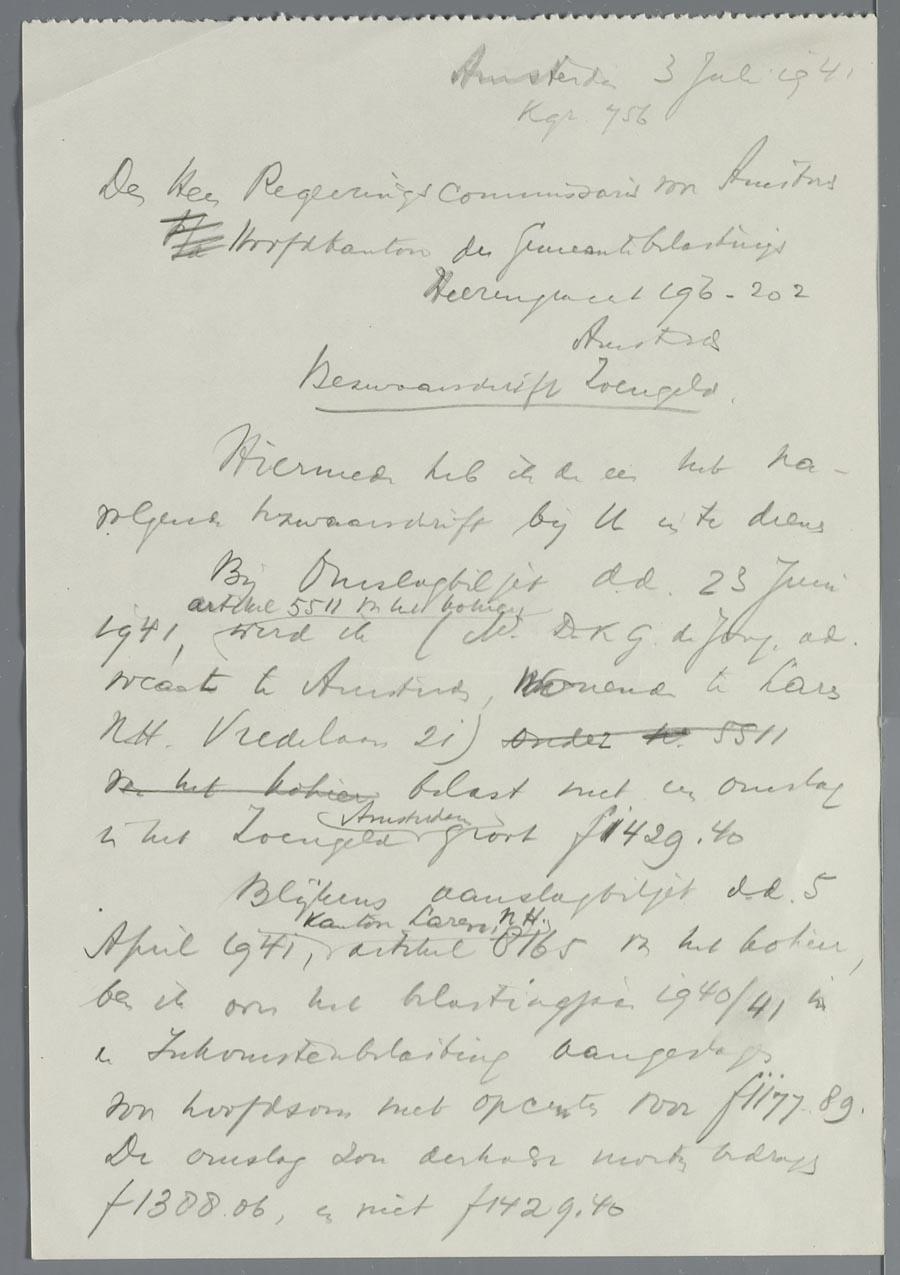 Amsterdam 3 Juli 1941
Kgr. 456
Den Heer Regeeringscommissaris voor Amsterdam
Hoofdkantoor der Gemeentebelastingen
Heerengracht 196-202
Amsterdam
Bezwaarschrift Zoengeld.
Hiermede heb ik de eer het na-
volgende bezwaarschrift bij U in te dienen
Bij Omslagbiljet d.d. 23 Juni
artikel 5511 van het kohier
1941, werd ik (Mr. D. K. G. de Jong, ad-
vocaat te Amsterdam, wonende te Laren
N.H. Vredelaan 21) onder no. 5511
van het kohier belast met een omslag
Amsterdam
in het Zoengeld groot f 1429.40
Blijkens aanslagbiljet d.d. 5
Kanton Laren, N.H.
April 1941, artikel 8165 van het kohier,
ben ik over het belastingjaar 1940/41 in
de Inkomstenbelasting aangeslagen
voor hoofdsom met opcenten voor f 1177.89.
De omslag zou derhalve moeten bedragen
f 1308.06, en niet f 1429.40